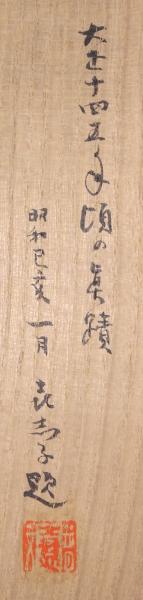 大正十四五年頃の真蹟
昭和己亥一月 喜志子題